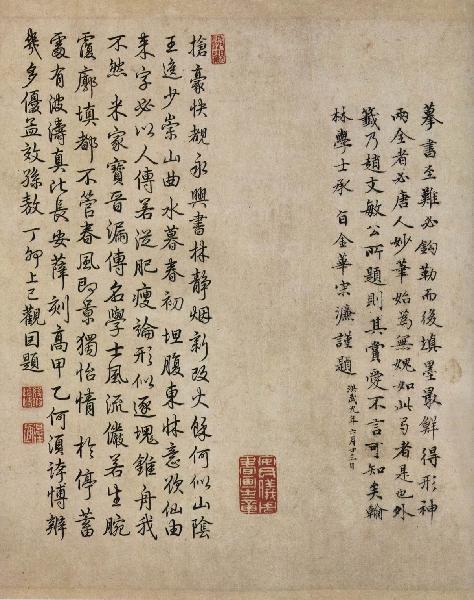 摹書至難必鉤勒而後填墨最鮮得形神
兩全者必唐人妙筆始為無媿如此卷者是也外
籤乃趙文敏公所題則其賞愛不言可知矣翰
林學士承旨金華宋濂謹題 洪武九年六月廿三日
搶豪快覩永興書林靜烟新改火餘何似山陰
王逸少崇山曲水暮春初 坦腹東牀意欲仙由
来字必以人傳若從肥瘦論形似逐塊錐舟我
不然 米家寶晉漏傳名學士風流儼若生腕
覆廓填都不管春風即景獨怡情 於停蓄
處有波濤真比長安薛刻高甲乙何須誇博辨
幾多優孟效孫敖 丁卯上巳觀回題